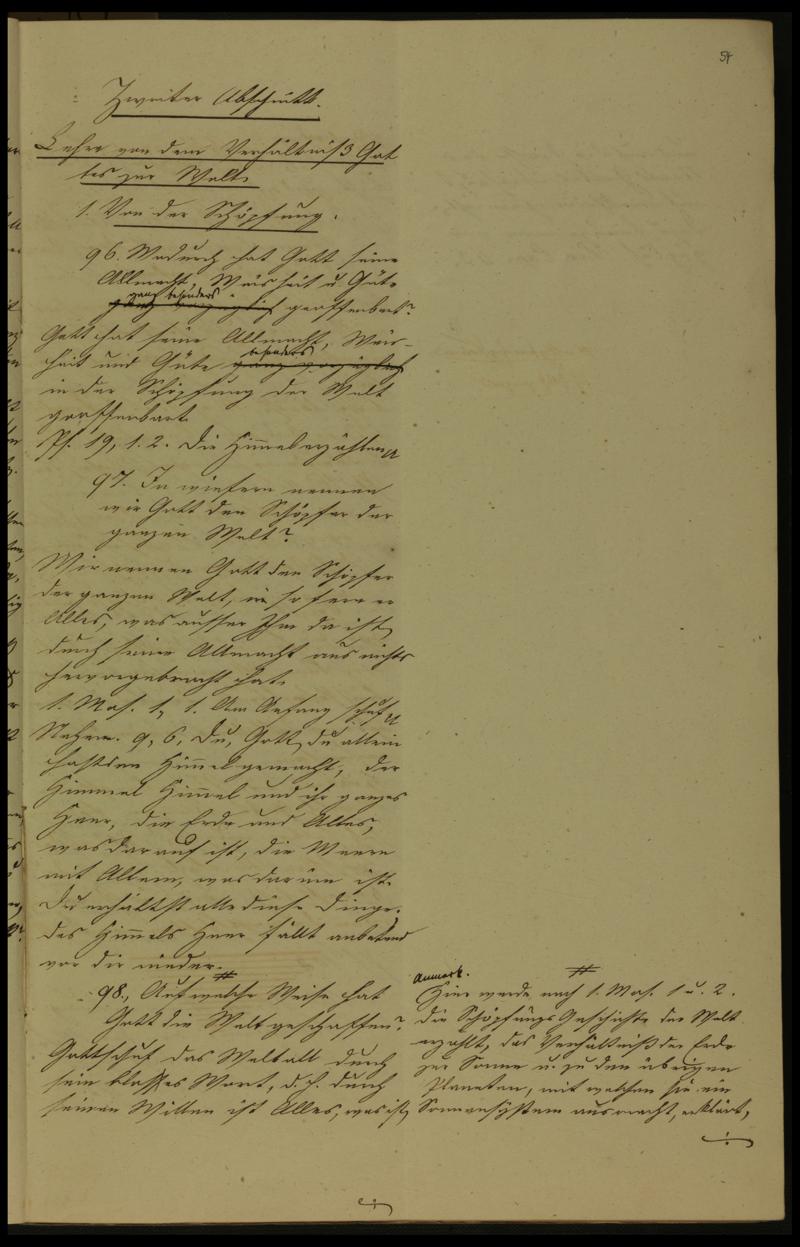 54
Zweiter Abschnitt.
Lehre von dem Verhältniß Got
tes zur Welt.
1. Von der Schöpfung.
96. Wodurch hat Gott seine
Allmacht, Weisheit u. Güte
ganz besonders
ganz vorzüglich geoffenbart?
Gott hat seine Allmacht, Weis-
besonders
heit und Güte ganz vorzüglich
in der Schöpfung der Welt
geoffenbart.
Ps. 19, 1. 2. Die Himmel erzählen
97. In wiefern nennen
wir Gott den Schöpfer der
ganzen Welt?
Wir nennen Gott den Schöpfer
der ganzen Welt, in so fern er
Alles, was ausser Ihm da ist,
durch seine Allmacht aus nichts
hervorgebracht hat.
1. Mos. 1, 1. Am Anfang schuf
Nehem. 9, 6. Du, Gott, du allein
hast den Himmel gemacht, der
Himmel Himmel und ihr ganzes
Heer, die Erde und Alles,
was darauf ist, die Meere
mit Allem, was darinn ist.
Du erhältst alle diese Dinge,
des Himmels Heer fällt anbetend
vor dir nieder. #
98., Auf welche Weise hat
Gott die Welt geschaffen?
Gott schuf das Weltall durch
sein bloßes Wort, d. h. durch
seinen Willen ist Alles, was ist,
Anmerk. #
Hier werde nach 1. Mos. 1 u. 2.
die Schöpfungs Geschichte der Welt
erzählt, das Verhältniß der Erde
zur Sonne u. zu den übrigen
Planeten, mit welchen sie ein
Sonnensystem ausmacht, erklärt,